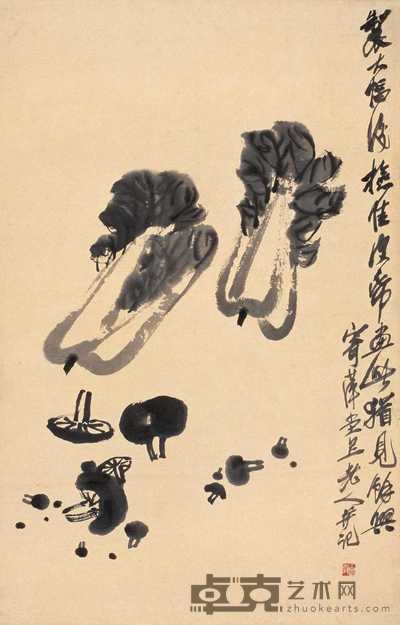 製大幅後擔佳紙帋畫此猶見餘興
寄萍堂上老人并記
卓克艺术网
www.zhuokearts.com